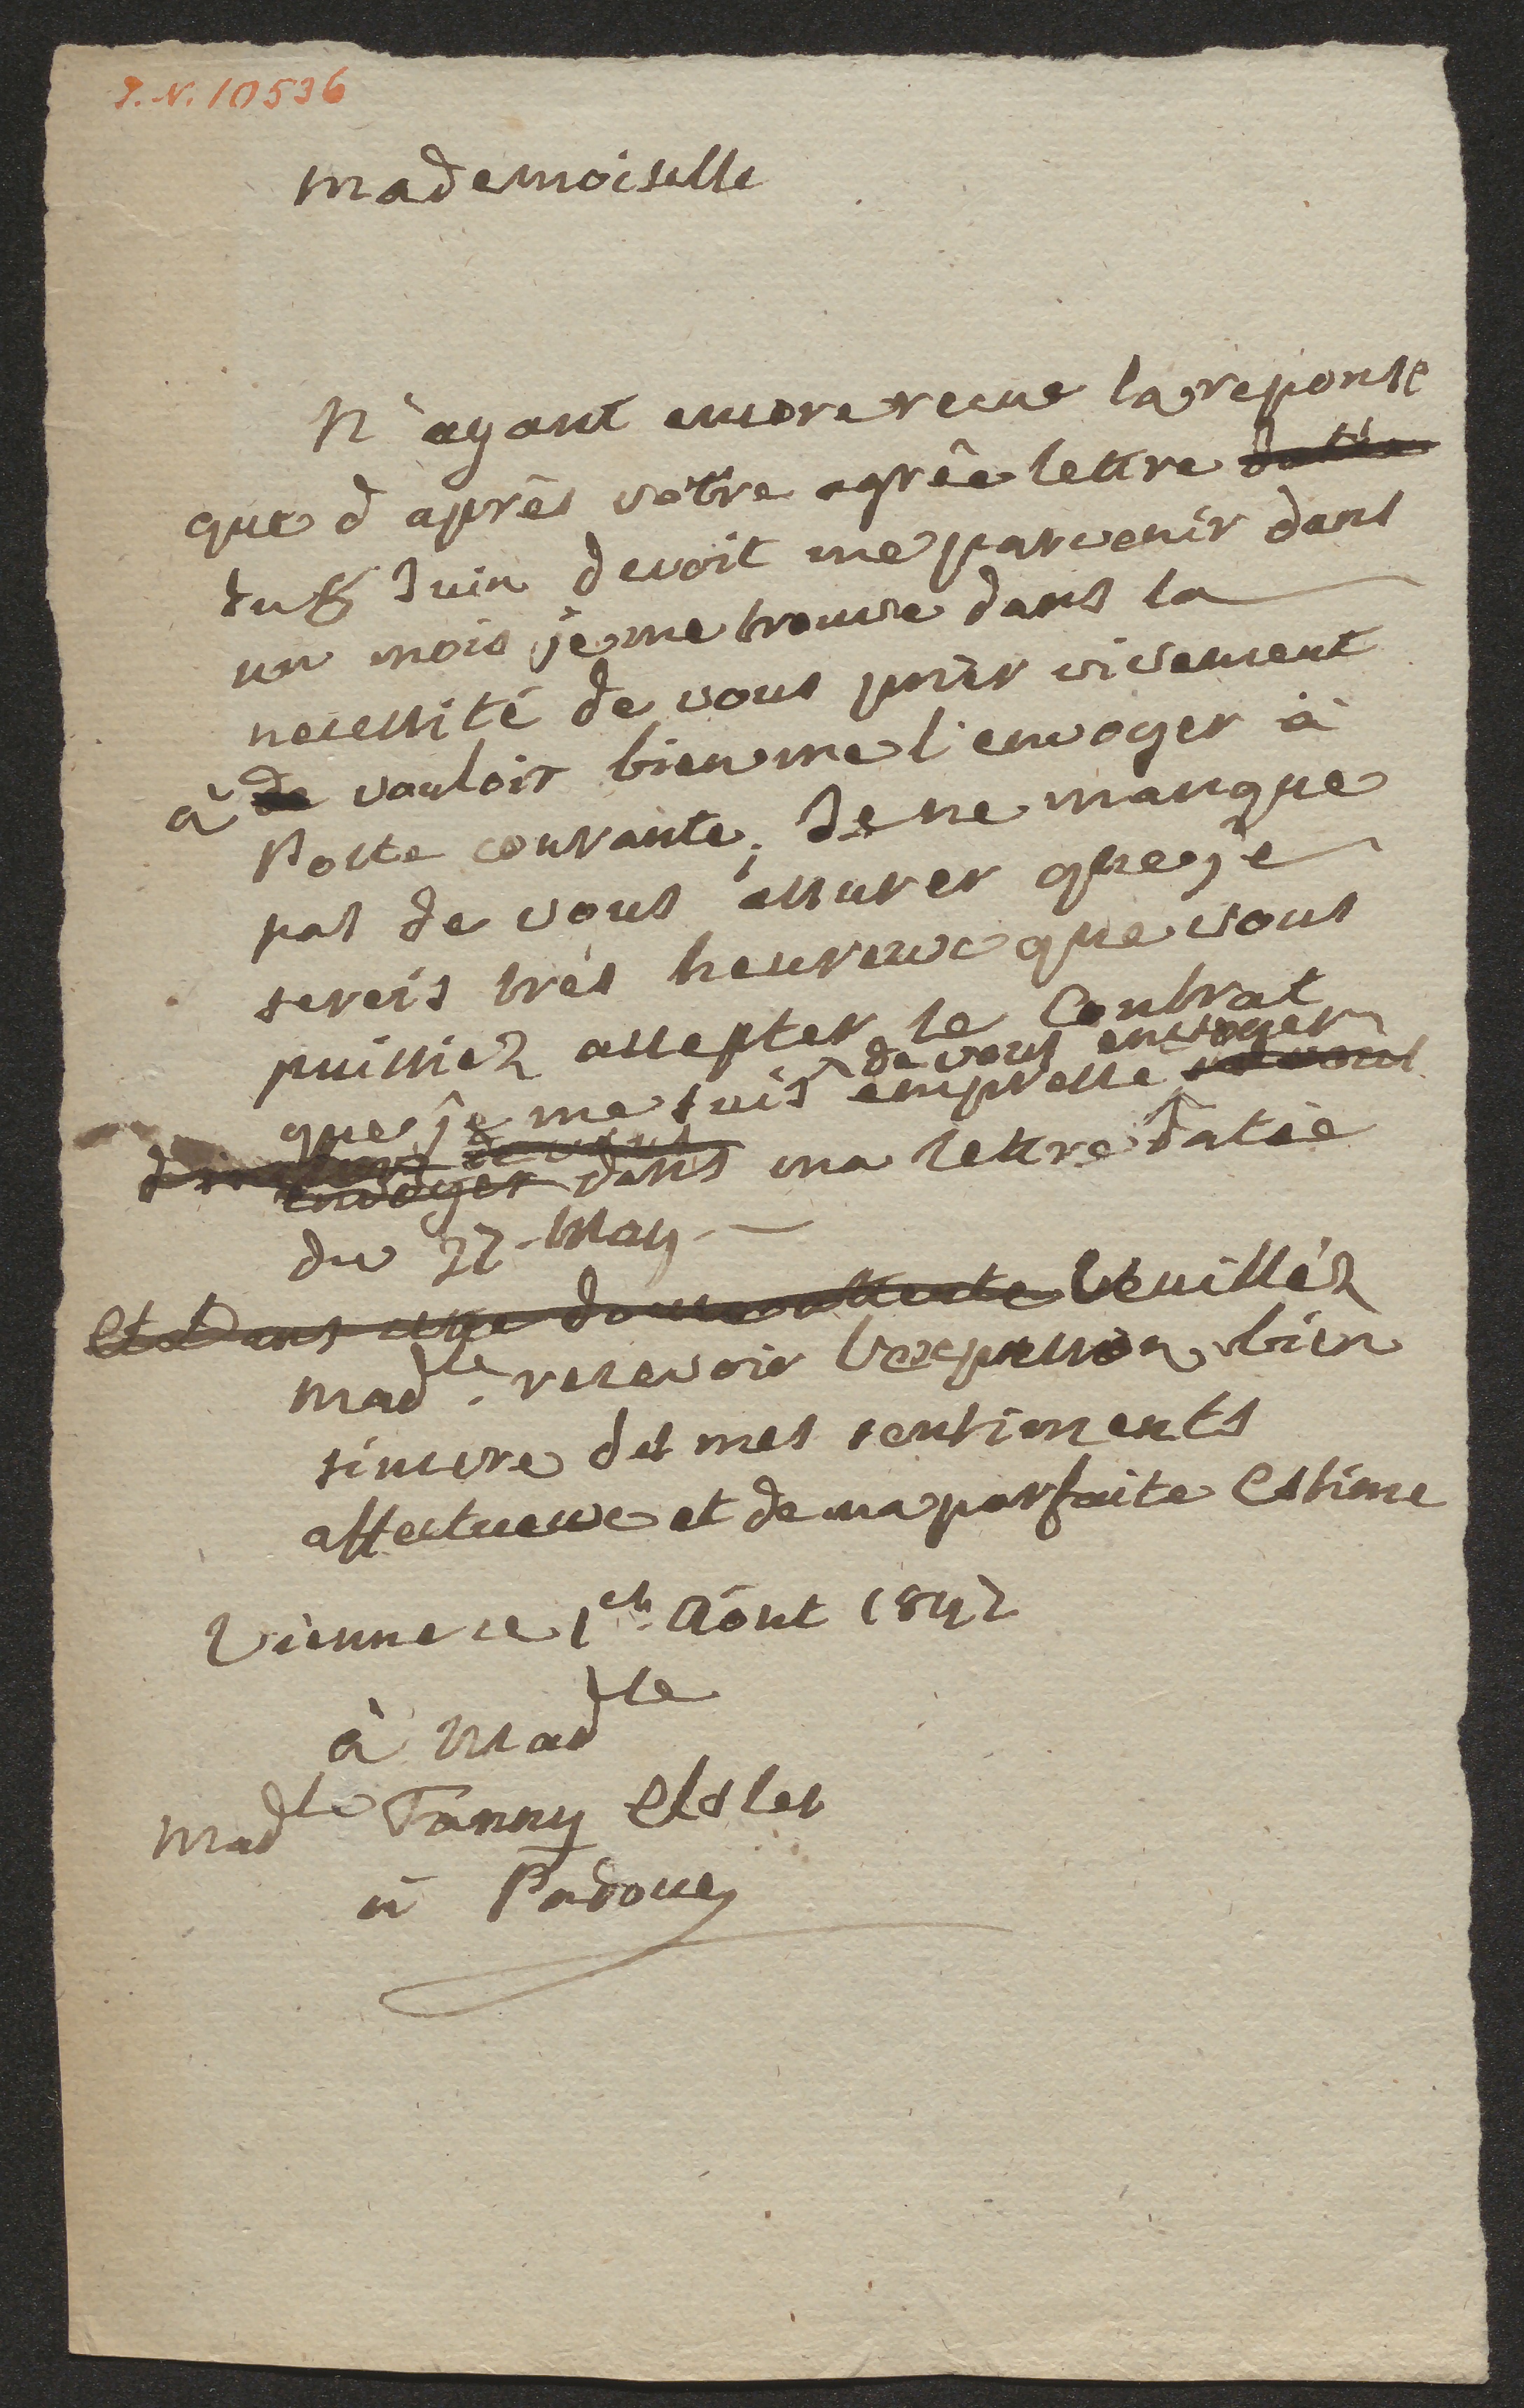 I. N. 10536
Mademoiselle
N'ayant encore recue la reponse
que d'après votre agrée lettre datée
du 8 Juin devoit me parvenir dans
un mois je me trouve dans la
necessité de vous prièr vivement
à de vouloir bien me l'envoyer à
Poste courante; Je ne manque
pas de vous assurer que je
sereis très heureux que vous
puissiez accepter le Contrat
de vous envoyer
que je me suis empresse
de vous
envoyer dans ma lettre datée
du 27 May
Et Dans cette douce attente Veuilléz
Madlle. recevoir l'expression bien
sincere des mes sentiments
affectueuxe et de ma parfaite Estime
Vienne ce 1er Aôut 1847
à Madlle
Madlle Fanny Elsler
à Padoue